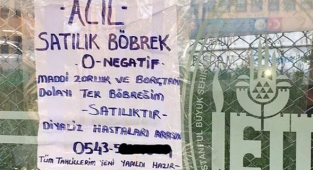 -ACİL-
SATILIK BÖBREK
O-NEGATİF
MADDİ ZORLUK VE BORÇTAN
DOLAYI TEK BÖBREĞİM
-SATILIKTIR-
DİYALİZ HASTALARI
0543-5
TÜM TAHLİLLERİM YENİ YAPILDI HAZIR-
İSTANBUL BÜYÜK
İETT